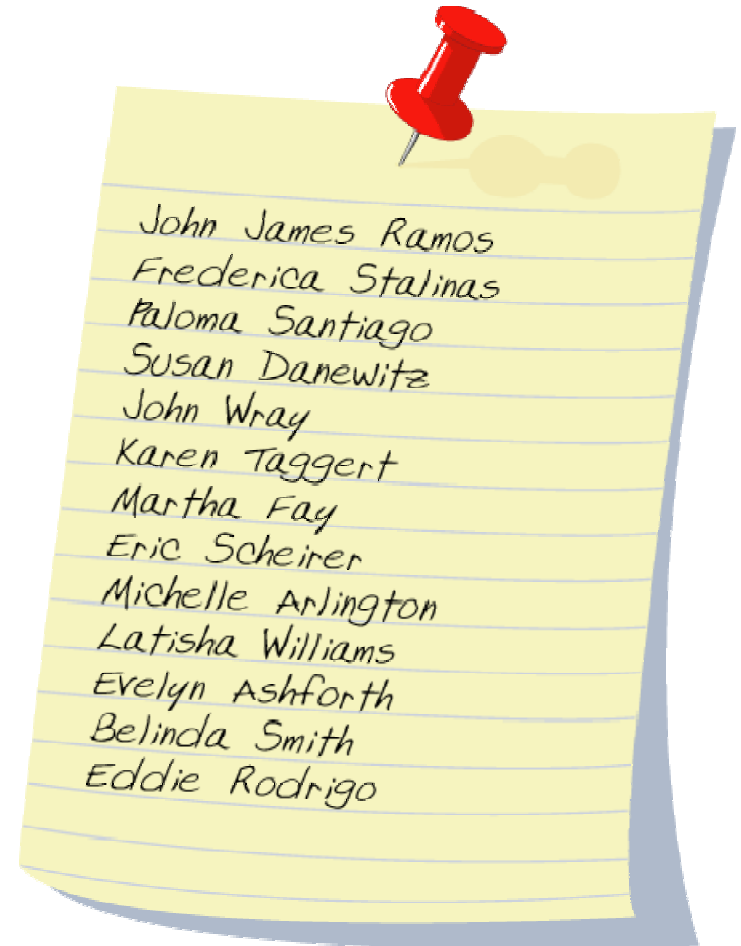 John James Ramos
Frederica Stalinas
Paloma Santiago
Susan Danewitz
John Wray
Karen Taggert
Martha Fay
Eric Scheirer
Michelle Arlington
Latisha Williams
Evelyn Ashforth
Belinda Smith
Eddie Rodrigo